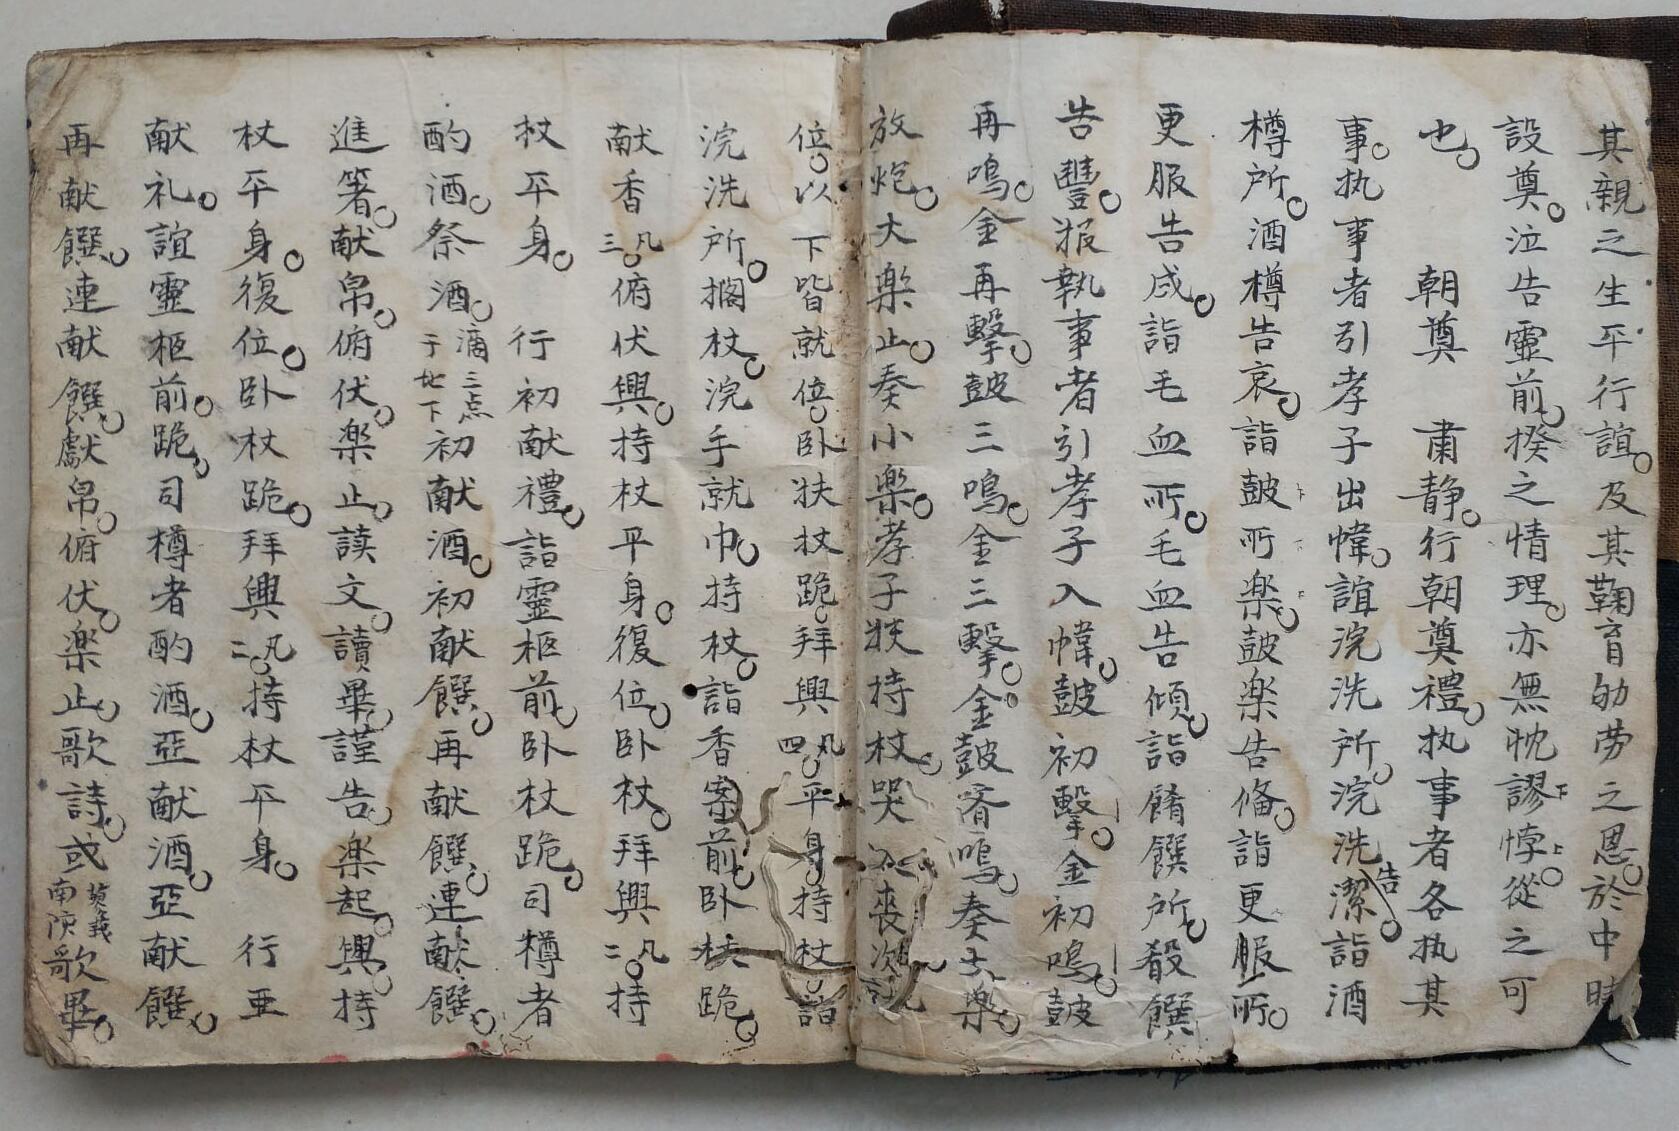 其親之生平行誼及其鞠育劬劳之恩於中時
設奠泣告靈前揆之情理亦無忱謬悖從之可
也 朝奠 肅静行朝奠禮执事者各执其
事执事者引孝子出幃誼浣洗所浣洗告潔詣酒
樽所酒樽告哀詣鼓所楽鼓楽告偹詣更服所
更服告成詣毛血所毛血告傾詣餚饌所殽饌
告豐报執事者引孝子入幃鼓初擊金初鳴鼓
再鳴金再擊鼓三鳴金三擊金鼓齐鳴奏大樂
放炮大楽止奏小楽孝子扶持杖哭 喪次就
位以下皆就位卧扶杖跪拜興凡四平身持杖詣
浣洗所搁杖浣手就巾持杖詣香案前卧杖跪
献香凡三俯伏興持杖平身復位卧杖拜興凡二持
杖平身 行初献禮詣靈柩前卧杖跪司樽者
酌酒祭酒滴三点于地下初献酒初献饌再献饌連献饌
進箸献帛俯伏楽止読文讀畢謹告楽起興持
杖平身復位卧杖跪拜興凡二持杖平身 行亜
献礼誼靈柩前跪司樽者酌酒亞献酒亞献饌
再献饌連献饌獻帛俯伏楽止歌詩或蓼莪南陔歌畢